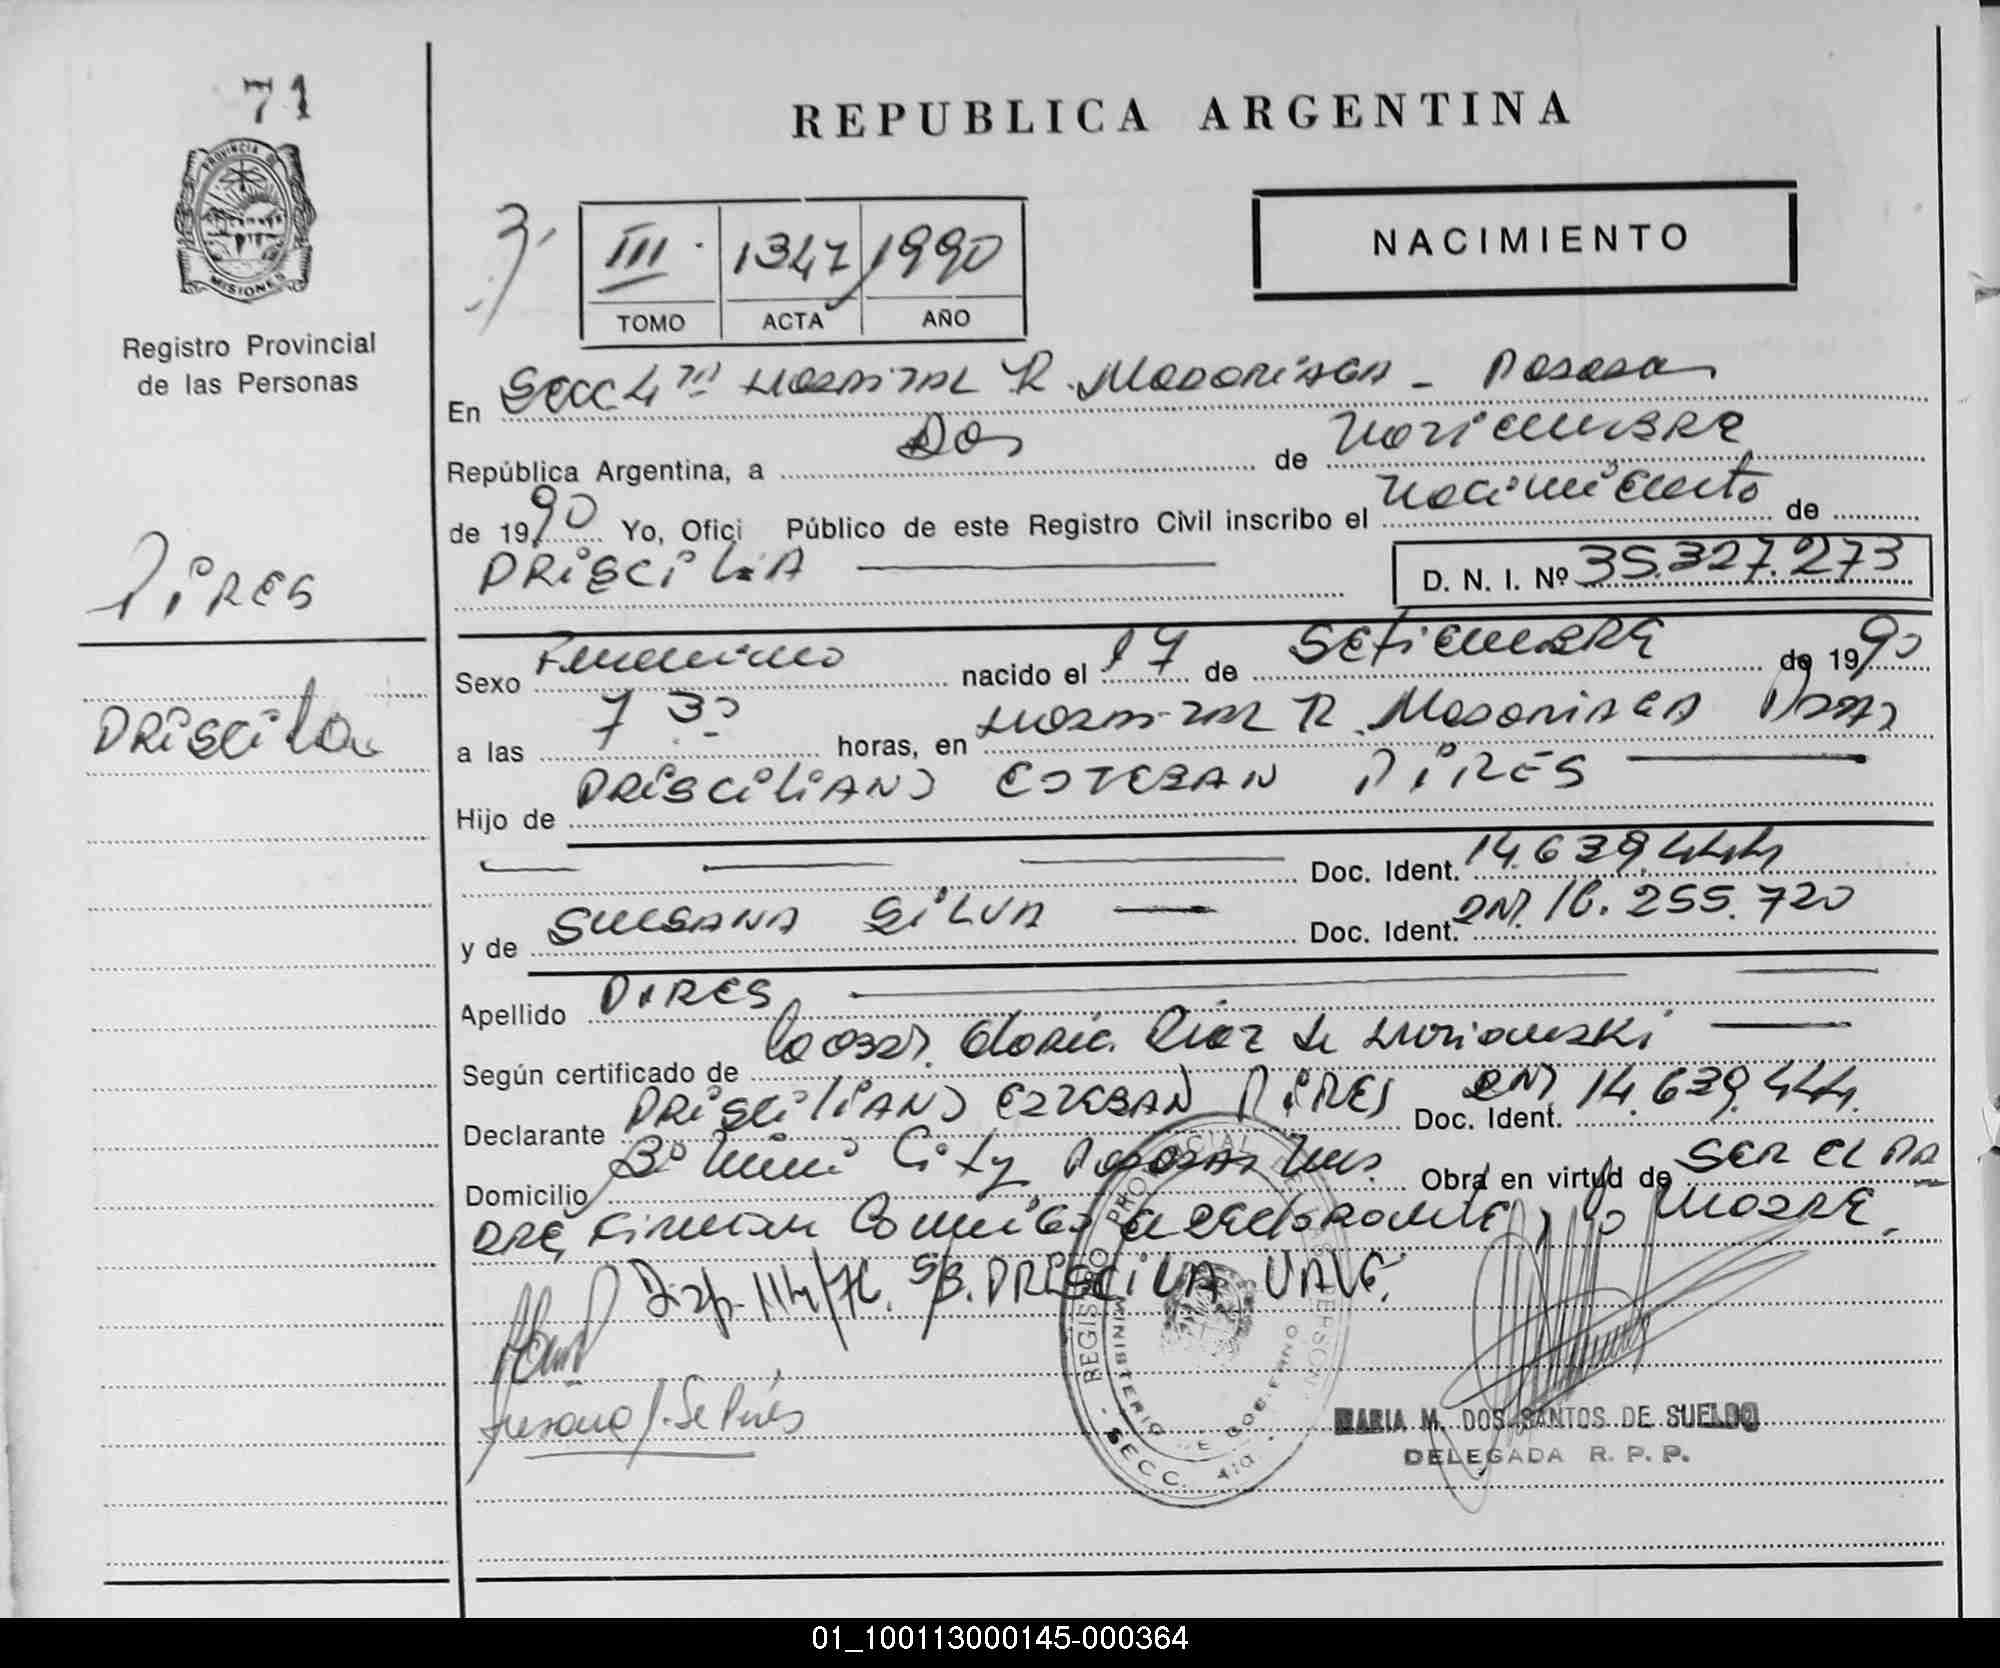 71
REPUBLICA ARGENTINA
PROVINCIA DE
MISIONES
Registro Provincial
de las Personas
III 1347 1990
TOMO ACTA AÑO
NACIMIENTO
En Secc 4ta Hospital R. Madariaga - Posadas
República Argentina, a Dos de Noviembre
de 1990 Yo, Ofici Público de este Registro Civil inscribo el Nacimiento de
PRISCILA
D. N. I. Nº 35.327.273
PIRES
Priscila
Sexo Femenino nacido el 17 de SETIEMBRE de 1990
a las 7 30 horas, en Hospital R. Madariaga Pdas
Hijo de PRISCILIANO ESTEBAN PIRES
Doc. Ident. 14.639.444
y de SUSANA SILVA Doc. Ident. DNI. 16.255.720
Apellido PIRES
Según certificado de la Obst. Gloria Diaz de
Declarante PRISCILIANO ESTEBAN PIRES Doc. Ident. DNI 14.639.444.
Domicilio Bº Mini City Posadas Mnes. Obra en virtud de SER EL PA
DRE, Firman Conmigo el declarante y la MADRE.
Disp. 114/76. S/B. PRISCILA VALE.
Susana S. de Pires
REGISTRO PROVINCIAL DE LAS PERSONAS
MINISTERIO DE GOBIERNO
SECC. 4ta
MARIA M. DOS SANTOS DE SUELDO
DELEGADA R. P. P.
01_100113000145-000364